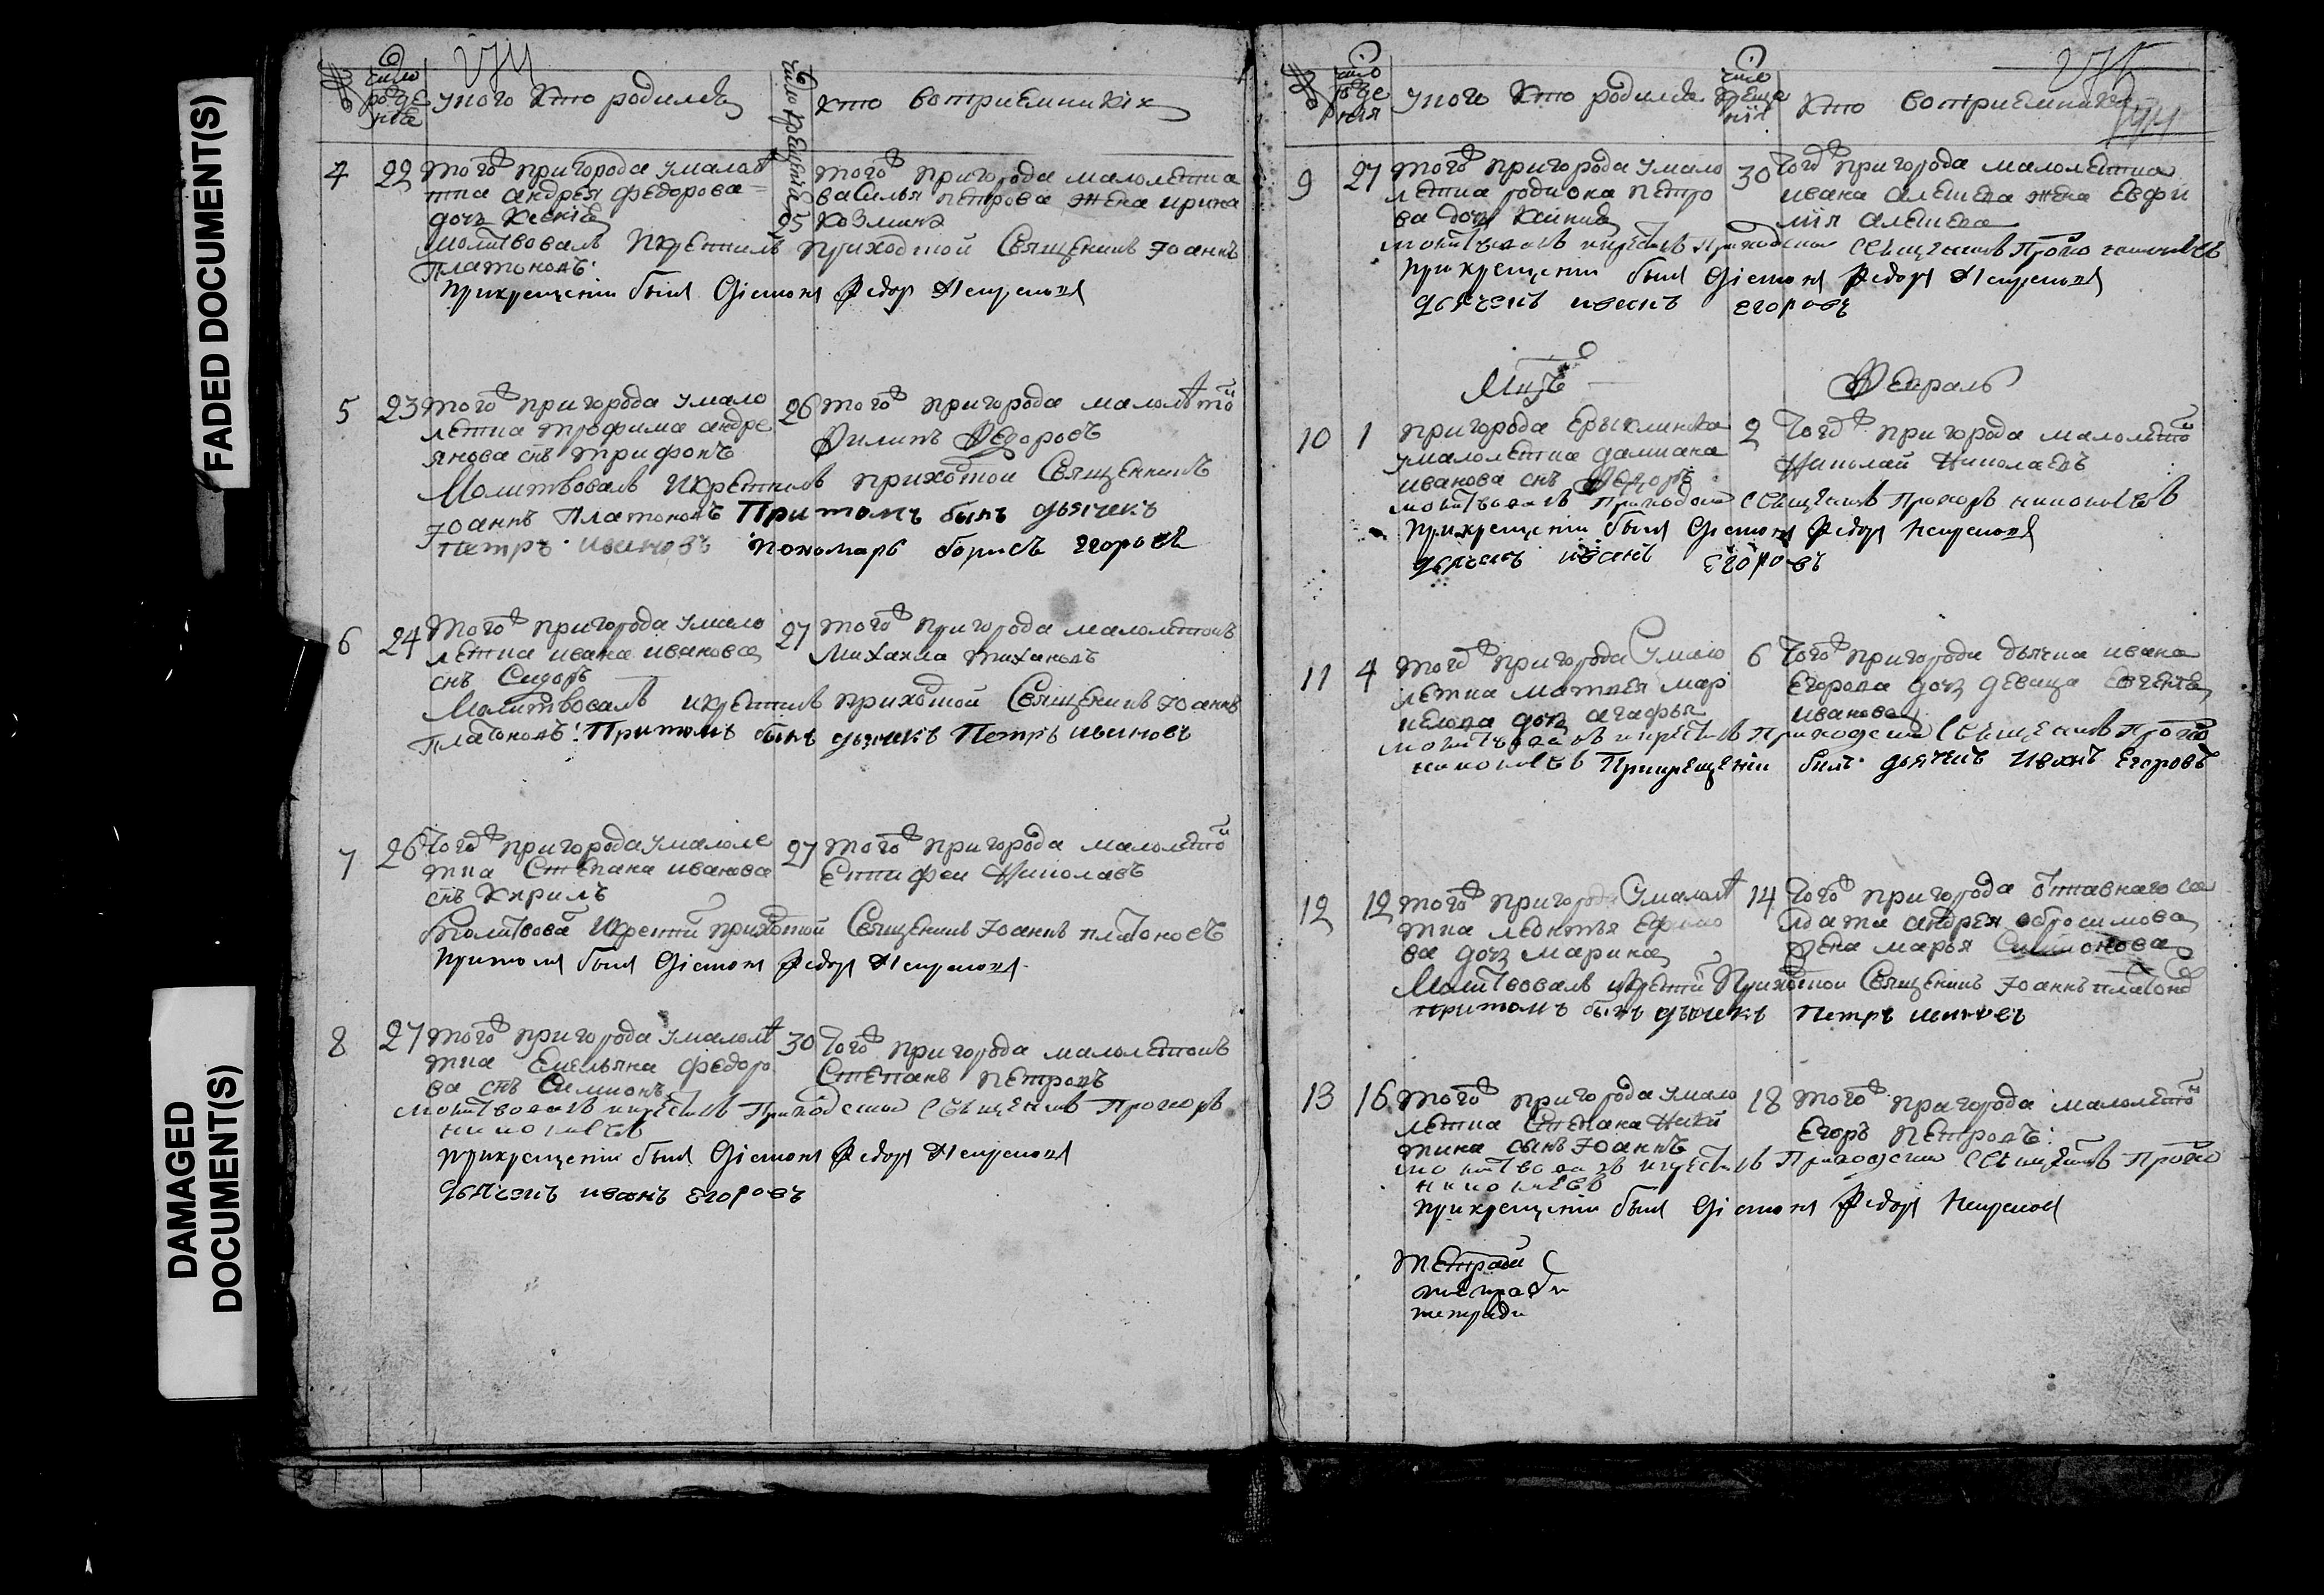 FADED DOCUMENT(S)
DAMAGED
DOCUMENT(S)
№
число
рожде
нїя
у кого кто родился
число крещения
кто восприемники
4
22
того пригорода у малолѣ
тка андрея федорова
дочь ксенїя
25
того пригорода малолетка
василья петрова жена ирина
козмина
молитвовалъ и крестилъ приходской священникъ Иоаннъ
Платоновъ
при крещенїи былъ дїаконъ федоръ
5
23
того пригорода у мало
летка трофима андре
янова снъ трифонъ
26
того пригорода малолѣтокъ
Филипъ Федоровъ
Молитвовалъ и крестилъ приходской священникъ
Иоаннъ Платоновъ При томъ былъ дьячекъ
петръ ивановъ пономарь борисъ егоровъ
6
24
того пригорода у мало
летка ивана иванова
снъ Сидоръ
27
того пригорода малолетокъ
Михаила тихановъ
Молитвовалъ и крестилъ приходской священникъ Иоаннъ
Платоновъ При томъ былъ дьячекъ Петръ ивановъ
7
26
того пригорода у малоле
тка Степана иванова
снъ Кирилъ
27
того пригорода малолетокъ
Епифеи Николаевъ
Молитвова и крести приходской священникъ Иоаннъ платоновъ
при томъ былъ дїаконъ федоръ
8
27
того пригорода у малолѣ
тка Емельяна федоро
ва снъ Симионъ
30
того пригорода малолетокъ
Степанъ петровъ
молитвовалъ и крестилъ приходской священникъ Прохоръ
николаевъ
при крещенїи былъ дїаконъ федоръ
дьячекъ иванъ егоровъ
№
число
рожде
нїя
у кого кто родился
число
креще
нїя
кто восприемники
9
27
того пригорода у мало
летка родиона петро
ва дочь
30
того пригорода малолетка
ивана алешева жена евфи
мїя алешева
молитвовалъ и крестилъ приходской священникъ Прохо николаевъ
при крещенїи былъ дїаконъ федоръ
дьячекъ иванъ егоровъ
Мцъ
Февраль
10
1
пригорода Ерыклинска
у малолетка дамиана
иванова снъ Федоръ
2
того пригорода малолетокъ
Николай Николаевъ
молитвовалъ приходской священникъ Прохоръ николаевъ
при крещенїи былъ дїаконъ федоръ
дьячекъ иванъ егоровъ
11
4
того пригорода у мало
летка матвея мар
келова дочь агафья
6
того пригорода дьячка ивана
Егорова дочь девица
иванова
молитвовалъ и крестилъ приходской священникъ Прохо
николаевъ При крещенїи былъ дьячекъ Иванъ Егоровъ
12
12
того пригорода у малолѣ
тка леонтья
ва дочь марина
14
того пригорода отставнаго со
лдата андрея обросимова
жена марья Симионова
Молитвовалъ и крести Приходской священникъ Иоаннъ платоно
притомъ былъ дьячекъ Петръ ивановъ
13
16
того пригорода у мало
летка Степана Ники
тина сынъ Иоаннъ
18
того пригорода малолетокъ
Егоръ петровъ
молитвовалъ и крестилъ Приходской священникъ Прохо
николаевъ
при крещенїи былъ дїаконъ федоръ
тетради
тетради
тетради